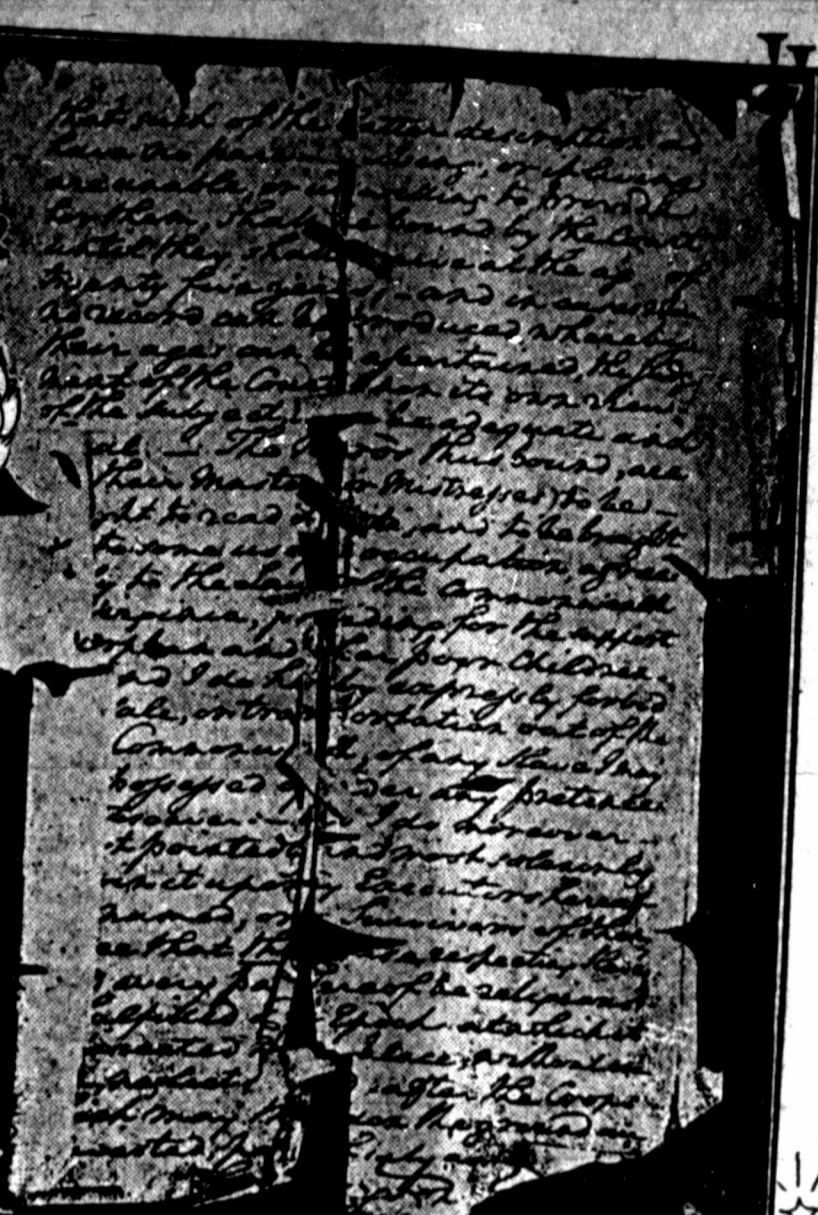 that such of the latter description as
have no parents living, or if living
are unable, or unwilling to provide
for them, shall be bound by the Court
until they shall arrive at the age of
twenty five years; - and in cases where
no record can be produced whereby
their ages can be ascertained, the judg
ment of the Court upon its own view
of the subject, be adequate and
al. — The thus bound, are
their Masters or Mistresses) to be
ght to read & to be brought
to some us occupation, agree
y to the Laws of the Commonwealth
Virginia, providing for the support
orphan and other poor Children. -
nd I do hereby expressly forbid
ale, or transportation out of the
Commonwealth, of any Slave I may
possessed of, under any pretence
soever. - I do moreover
t pointedly and most solemnly
in it upon my Executors hereaf-
named, or Survivors of them
ee that th respecting
every part thereof be religiously
ulfilled Epoch at which it
rected place; without
neglect after the Crops
ich may be on the ground are
arvested,